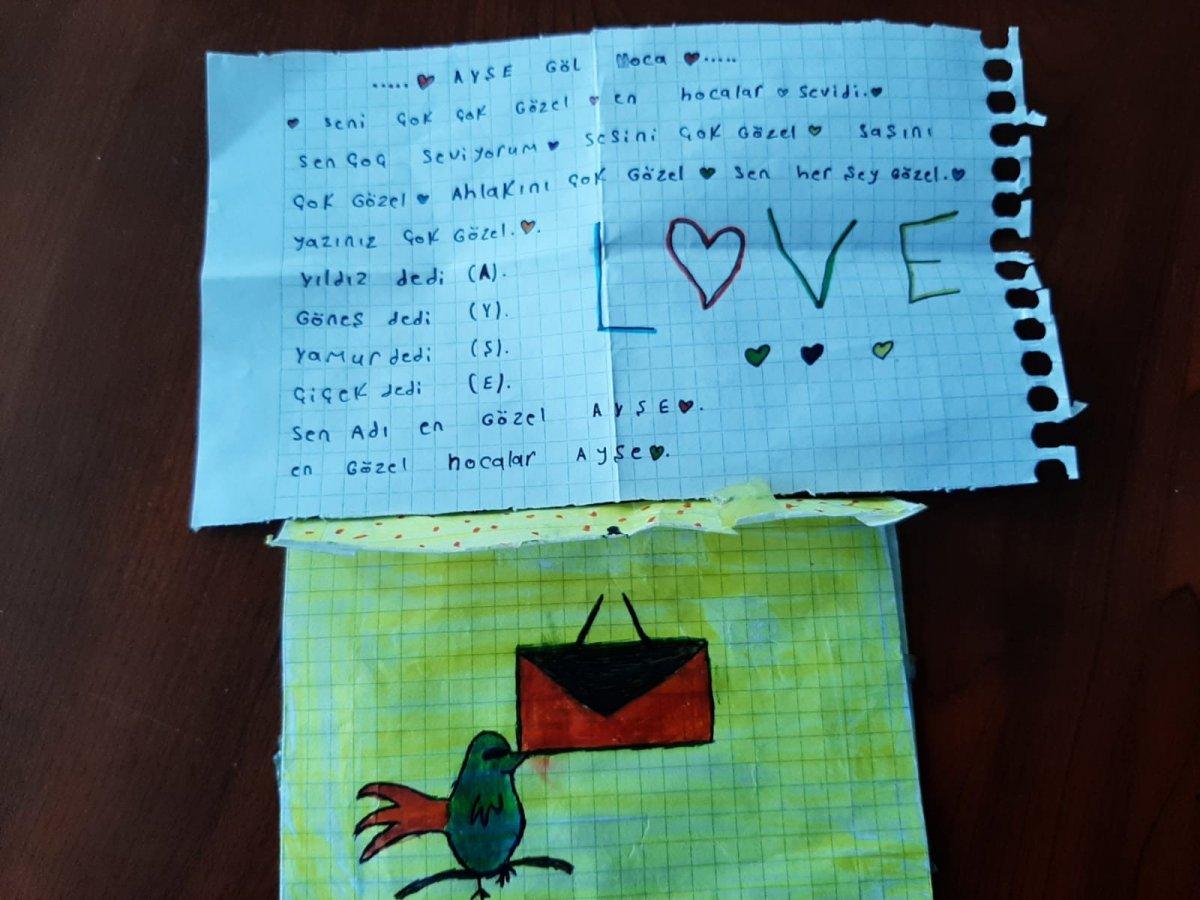 ..... AYŞE GÖL Hoca .....
seni çok çok Gözel en hocalar sevidi.
sen çoç seviyorum sesini çok Gözel saşını
çok Gözel Ahlakını çok Gözel sen her şey Gözel.
yazınız çok Gözel.
LOVE
yıldız dedi (A).
Göneş dedi (Y).
yamur dedi (Ş).
çiçek dedi (E).
sen Adı en Gözel AYŞE.
en Gözel hocalar Ayşe.